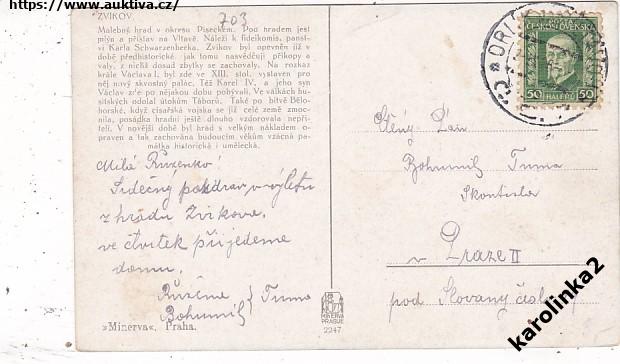 https://www.auktiva.cz/
ZVÍKOV
703
Malebný hrad v okresu Píseckém. Pod hradem jest
mlýn a přístav na Vltavě. Náleží k fideikomis. panst-
ví Karla Schwarzenberka. Zvíkov byl opevněn již v
době předhistorické jak tomu nasvědčují příkopy a
valy, z nichž dosud zbytky se zachovaly. Na rozkaz
krále Václava I. byl zde ve XIII. stol. vystaven pro
něj nový skvostný palác. Též Karel IV., a jeho syn
Václav zvě po nějakou dobu pobývali. Ve válkách hu-
sitských odolal útokům Táborů. Také po bitvě Bělo-
horské, když císařská vojska se již celé země zmoc-
nila, posádka hradní ještě dlouho vzdorovala nepřá-
teli. V novější době byl hrad s velkým nákladem o-
praven a tak zachována budoucím věkům vzácná pa-
mátka historická i umělecká.
Milá Růženko!
Srdečný pozdrav z výletu
z hradu Zvíkova,
ve čtvrtek přijedeme
domu.
Růžena } Tuma
Bohumil
»Minerva«, Praha.
MINERVA
PRAGUE
2247
ČESKOSLOVENSKÁ
50 HALÉŘŮ 50
Ctěný Pan
Bohumil Tuma
v Praze II
pod Slovany číslo
karolinka2